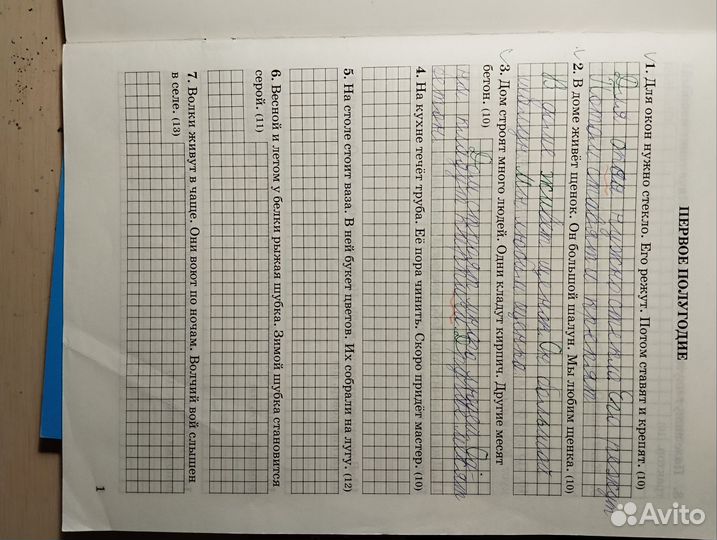 ПЕРВОЕ ПОЛУГОДИЕ
1. Для окон нужно стекло. Его режут. Потом ставят и крепят. (10)
Для окон нужно стекло Его режут
Потом ставят и крепят
2. В доме живёт щенок. Он большой шалун. Мы любим щенка. (10)
В доме живёт щенок Он большой
шалун Мы любим щенка
3. Дом строят много людей. Одни кладут кирпич. Другие месят
бетон. (10)
Дом строят много людей
Другие месят
4. На кухне течёт труба. Её пора чинить. Скоро придёт мастер. (10)
5. На столе стоит ваза. В ней букет цветов. Их собрали на лугу. (12)
6. Весной и летом у белки рыжая шубка. Зимой шубка становится
серой. (11)
7. Волки живут в чаще. Они воют по ночам. Волчий вой слышен
в селе. (13)
1
Avito